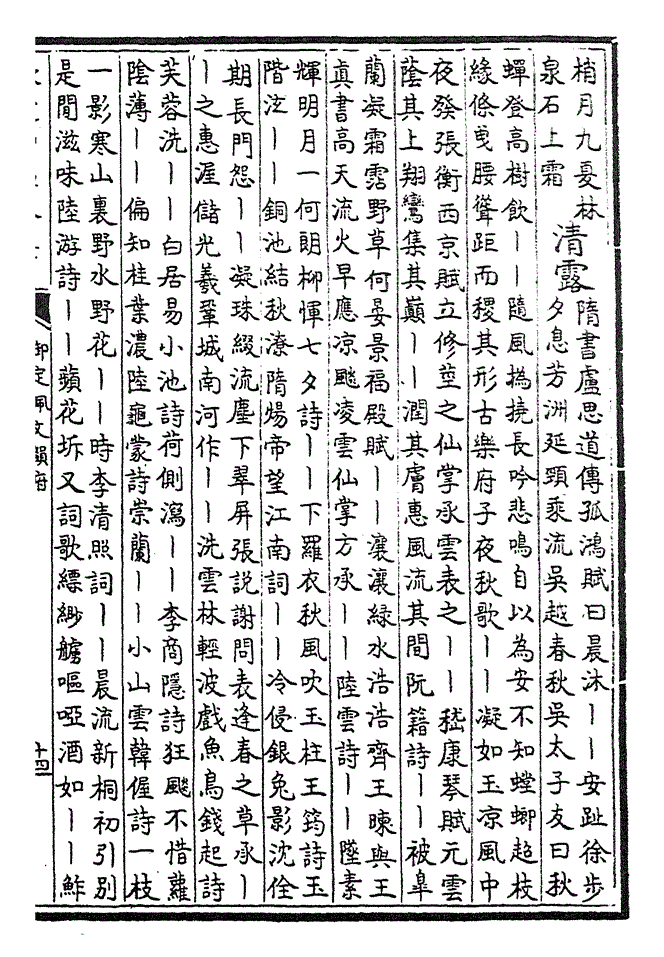 梢月九憂林
泉石上霜
清露
隋書盧思道傳孤鴻賦曰晨沐丨丨安趾徐步
夕息芳洲延頸乘流吳越春秋吳太子友曰秋
蟬登高樹飲丨丨隨風撝撓長吟悲鳴自以為安不知螳螂超枝
緣條曵腰聳距而稷其形古樂府子夜秋歌丨丨凝如玉凉風中
夜發張衡西京賦立修莖之仙掌承雲表之丨丨嵇康琴賦元雲
蔭其上翔鸞集其巔丨丨潤其膚惠風流其間阮籍詩丨丨被臯
蘭凝霜霑野草何晏景福殿賦丨丨瀼瀼緑水浩浩齊王暕與王
眞書高天流火早應凉飈凌雲仙掌方承丨丨陸雲詩丨丨墜素
輝明月一何朗柳惲七夕詩丨丨下羅衣秋風吹玉柱王筠詩玉
階泫丨丨銅池結秋潦隋煬帝望江南詞丨丨冷侵銀兔影沈佺
期長門怨丨丨凝珠綴流塵下翠屏張説謝問表逢春之草承丨
丨之惠渥儲光羲鞏城南河作丨丨洗雲林輕波戲魚鳥錢起詩
芙蓉洗丨丨白居易小池詩荷側瀉丨丨李商隱詩狂飈不惜蘿
陰薄丨丨偏知桂葉濃陸龜蒙詩崇蘭丨丨小山雲韓偓詩一枝
一影寒山裏野水野花丨丨時李清照詞丨丨晨流新桐初引别
是閒滋味陸游詩丨丨蘋花坼又詞歌縹緲艣嘔啞酒如丨丨鮓
御定佩文韻府
十四